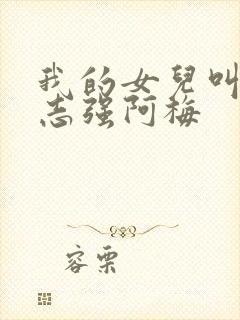 我的女兒叫
志强阿梅
容栗